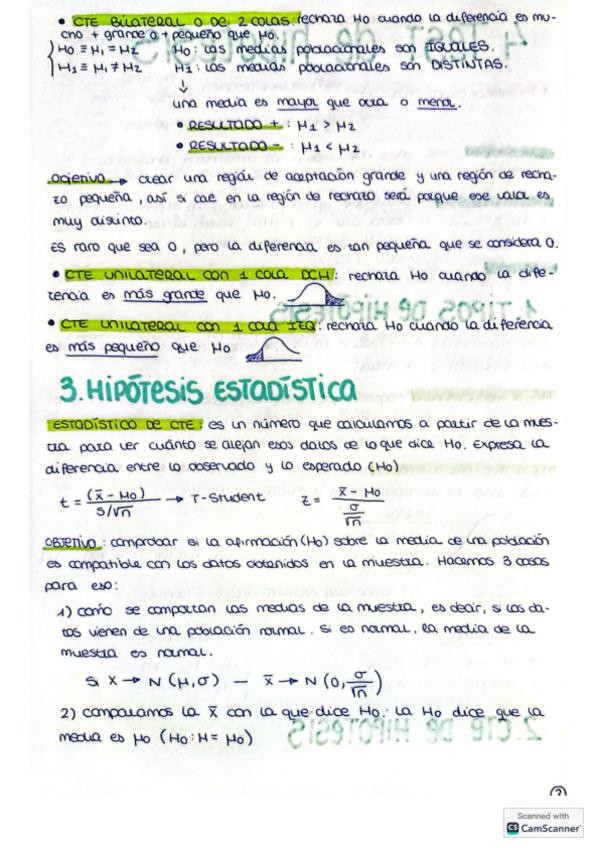 • CTE BILATERAL O DE 2 COLAS: rechaza H0 cuando la diferencia es mu-
cho + grande o + pequeño que H0.
H0 ≡ μ1 = μ2 H0: las medias poblacionales son IGUALES.
H1 ≡ μ1 ≠ μ2 H1: las medias poblacionales son DISTINTAS.
↓
una media es mayor que otra o menor.
• RESULTADO + : μ1 > μ2
• RESULTADO - : μ1 < μ2
Objetivo → crear una región de aceptación grande y una región de recha-
zo pequeña, así si cae en la región de rechazo será porque ese valor es
muy distinto.
ES raro que sea 0, pero la diferencia es tan pequeña que se considera 0.
• CTE UNILATERAL CON 1 COLA DCH: rechaza H0 cuando la dife-
rencia es más grande que H0.
• CTE UNILATERAL CON 1 COLA IZQ: rechaza H0 cuando la diferencia
es más pequeño que H0
3. HIPÓTESIS ESTADÍSTICA
ESTADÍSTICO DE CTE: es un número que calculamos a partir de la mues-
tra para ver cuánto se alejan esos datos de lo que dice H0. Expresa la
diferencia entre lo observado y lo esperado (H0)
t = (x̄ - μ0) / S/√n → T-Student Z = x̄ - μ0 / σ/√n
OBJETIVO: comprobar si la afirmación (H0) sobre la media de una población
es compatible con los datos obtenidos en la muestra. Hacemos 3 cosas
para eso:
1) como se comportan las medias de la muestra, es decir, si los da-
tos vienen de una población normal. Si es normal, la media de la
muestra es normal.
Si X → N (μ, σ) — x̄ → N (0, σ/√n)
2) comparamos la x̄ con la que dice H0: la H0 dice que la
media es μ0 (H0: μ = μ0)
Scanned with
CS CamScanner